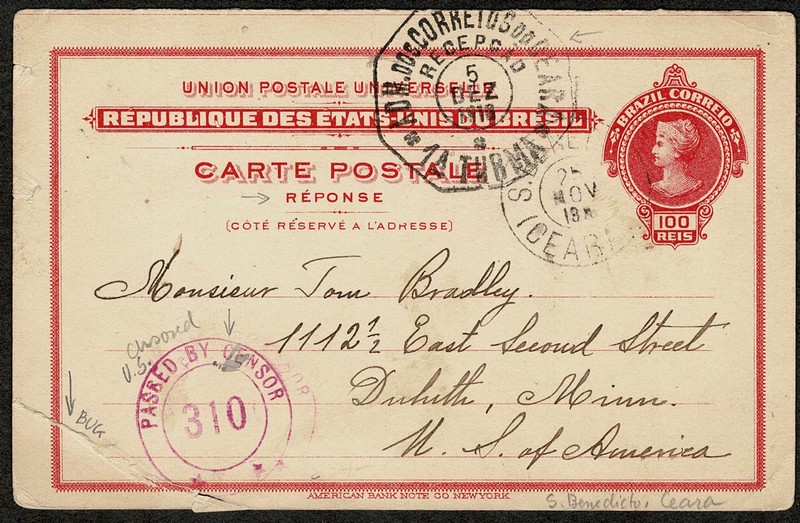 UNION POSTALE UNIVERSELLE
RÉPUBLIQUE DES ÉTATS-UNIS DU BRÉSIL
CARTE POSTALE
RÉPONSE
(CÔTÉ RÉSERVÉ A L'ADRESSE)
ADM. DOS CORREIOS DO CEARÁ
RECEPÇÃO
5
DEZ
1918
1A TURMA
BRAZIL CORREIO
100
REIS
S.
25
NOV
(CEARÁ)
Monsieur Tom Bradley.
1112 1/2 East Second Street
Duluth, Minn.
U. S. of America
censored
U.S.
PASSED BY CENSOR
310
BUG
AMERICAN BANK NOTE CO NEW YORK.
S. Benedicto, Ceara